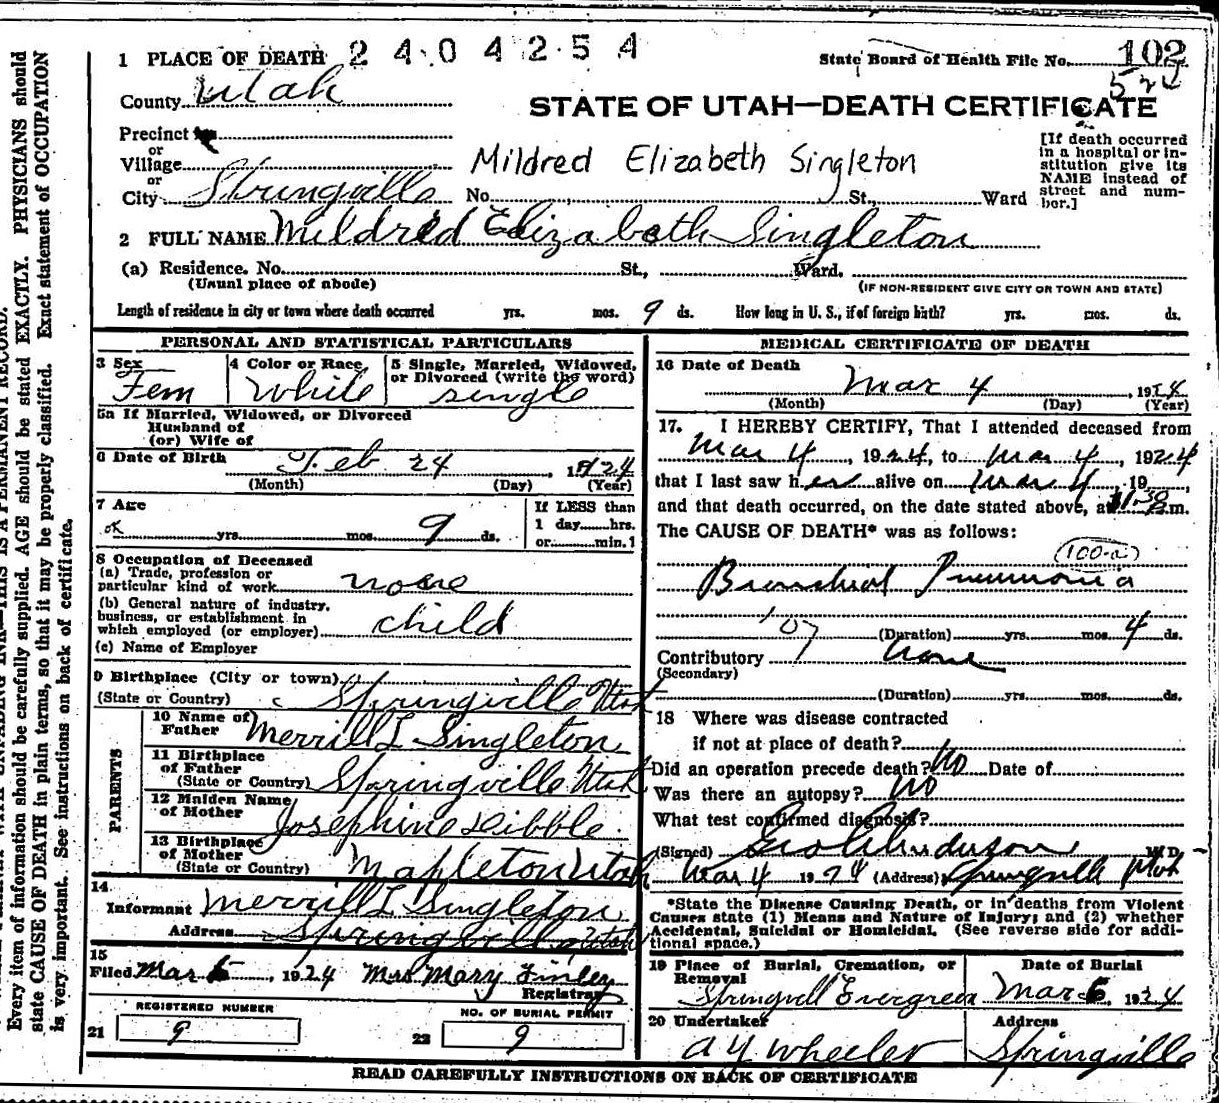 1 PLACE OF DEATH 2404254 State Board of Health File No. 102
524
County Utah
STATE OF UTAH—DEATH CERTIFICATE
Precinct
or
Village
or
City Springville No. St., Ward
Mildred Elizabeth Singleton
[If death occurred
in a hospital or in-
stitution give its
NAME instead of
street and num-
ber.]
2 FULL NAME Mildred Elizabeth Singleton
(a) Residence. No. St., Ward.
(Usual place of abode) (IF NON-RESIDENT GIVE CITY OR TOWN AND STATE)
Length of residence in city or town where death occurred yrs. mos. 9 ds. How long in U. S., if of foreign birth? yrs. mos. ds.
PERSONAL AND STATISTICAL PARTICULARS
3 Sex 4 Color or Race 5 Single, Married, Widowed,
or Divorced (write the word)
Fem White single
5a If Married, Widowed, or Divorced
Husband of
(or) Wife of
6 Date of Birth Feb 24, 1924
(Month) (Day) (Year)
7 Age If LESS than
1 day......hrs.
or......min.
ok yrs. mos. 9 ds.
8 Occupation of Deceased
(a) Trade, profession or
particular kind of work none
(b) General nature of industry,
business, or establishment in
which employed (or employer) child
(c) Name of Employer
9 Birthplace (City or town)
(State or Country) Springville Utah
PARENTS
10 Name of
Father Merrill L Singleton
11 Birthplace
of Father
(State or Country) Springville Utah
12 Maiden Name
of Mother Josephine Dibble
13 Birthplace
of Mother
(State or Country) Mapleton Utah
14
Informant Merrill L Singleton
Address Springville, Utah
15
Filed Mar 5, 1924 Mrs Mary Finley
Registrar
REGISTERED NUMBER NO. OF BURIAL PERMIT
21 9 22 9
MEDICAL CERTIFICATE OF DEATH
16 Date of Death
Mar 4, 1924
(Month) (Day) (Year)
17. I HEREBY CERTIFY, That I attended deceased from
Mar 4, 1924, to Mar 4, 1924
that I last saw her alive on Mar 4, 19
and that death occurred, on the date stated above, at 11.30 m.
The CAUSE OF DEATH* was as follows:
(100-a)
Bronchial Pneumonia
107 (Duration) yrs. mos. 4 ds.
Contributory none
(Secondary)
(Duration) yrs. mos. ds.
18 Where was disease contracted
if not at place of death?
Did an operation precede death? No Date of
Was there an autopsy? No
What test confirmed diagnosis?
(Signed) Anderson M. D.
Mar 4 1924 (Address) Springville Utah
*State the Disease Causing Death, or in deaths from Violent
Causes state (1) Means and Nature of Injury; and (2) whether
Accidental, Suicidal or Homicidal. (See reverse side for addi-
tional space.)
19 Place of Burial, Cremation, or
Removal Date of Burial
Springvill Evergreen Mar 6, 1924
20 Undertaker Address
A Y Wheeler Springville
READ CAREFULLY INSTRUCTIONS ON BACK OF CERTIFICATE
THIS IS A PERMANENT RECORD.
Every item of information should be carefully supplied. AGE should be stated EXACTLY. PHYSICIANS should
state CAUSE OF DEATH in plain terms, so that it may be properly classified. Exact statement of OCCUPATION
is very important. See instructions on back of certificate.